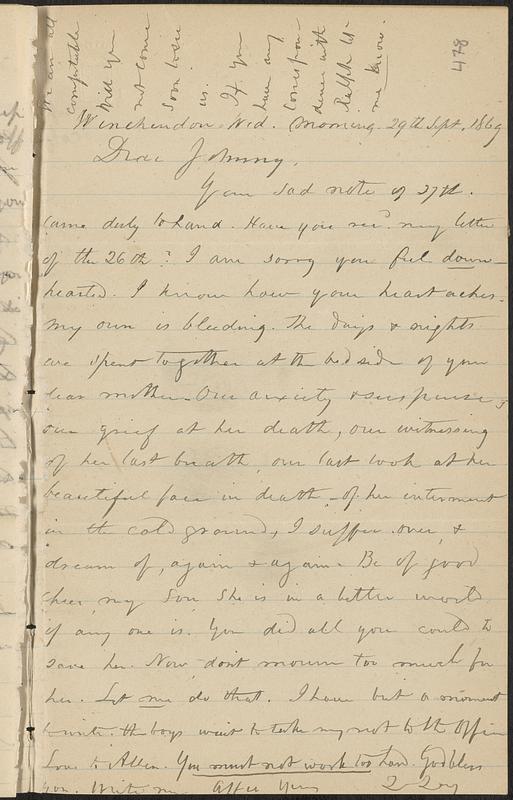 We are all
comfortable
Will you
not come
soon to see
us. If you
have any
correspon-
dence with
Ralph let
me know.
478
Winchendon Wed. morning. 29th Sept, 1869
Dear Johnny,
Your sad note of 27th.
came duly to hand. Have you recd. my letter
of the 26th? I am sorry you feel down-
hearted. I know how your heart aches.
my own is bleeding. The days & nights
we spent together at the bed side of your
dear mother - Our anxiety & suspense,
our grief at her death, our witnessing
of her last breath, our last look at her
beautiful face in death, - of her interment
in the cold ground, I suffer over, &
dream of, again & again. Be of good
cheer, my Son She is in a better world
if any one is. You did all you could to
save her. Now dont mourn too much for
her. Let me do that. I have but a moment
to write. the boys wait to take my note to the Office
Love to Allen. You must not work too hard. God bless
you. Write me. Affec Yours